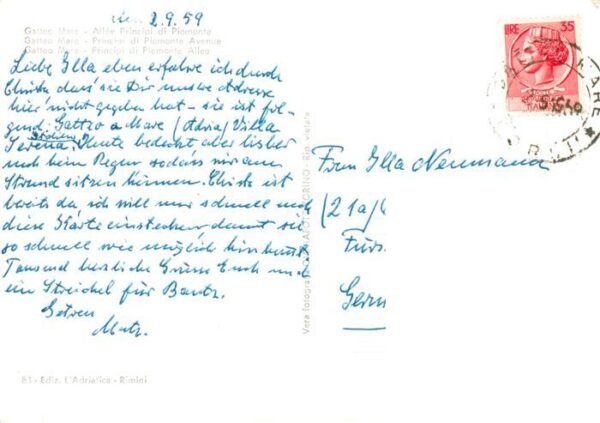 2.9.59
Gatteo Mare - Allée Principi di Piemonte
Gatteo Mare - Principi di Piemonte Avenue
Gatteo Mare - Principi di Piemonte Allee
Liebe Illa eben erfahre ich durch
Christa dass sie Dir unsre Adresse
hier nicht gegeben hat - sie ist fol-
gend: Gatteo a Mare (Adria) Villa
Serena. Heute bedeckt aber bisher
noch kein Regen sodass wir am
Strand sitzen können. Christa ist
bereits da, ich will nur schnell noch
diese Karte einstecken damit sie
so schnell wie möglich hinkommt
Tausend herzliche Grüsse Euch und
ein Streichel für Bautz.
Getreu
Mutz.
83 - Ediz. L'Adriatica - Rimini
Vera fotografia - Rip. vietata
LIRE 35
Frau Illa Neumann
(21a)
Gern